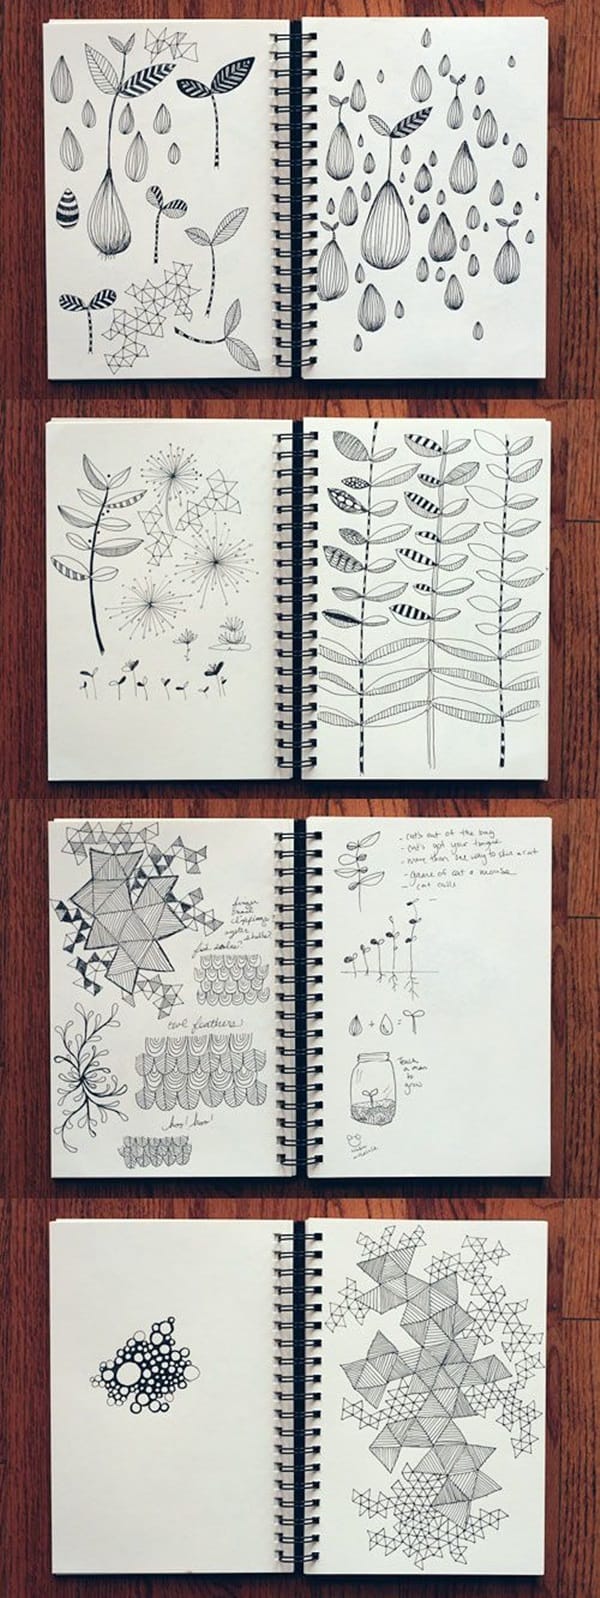 - cat's out of the bag
- cat's got your tongue
- more than one way to skin a cat
- game of cat & mouse
- cat calls
finger
nail
clippings
oyster shells?
fish scales?
owl feathers
hoo! hoo!
+ =
Teach
a man
to
grow